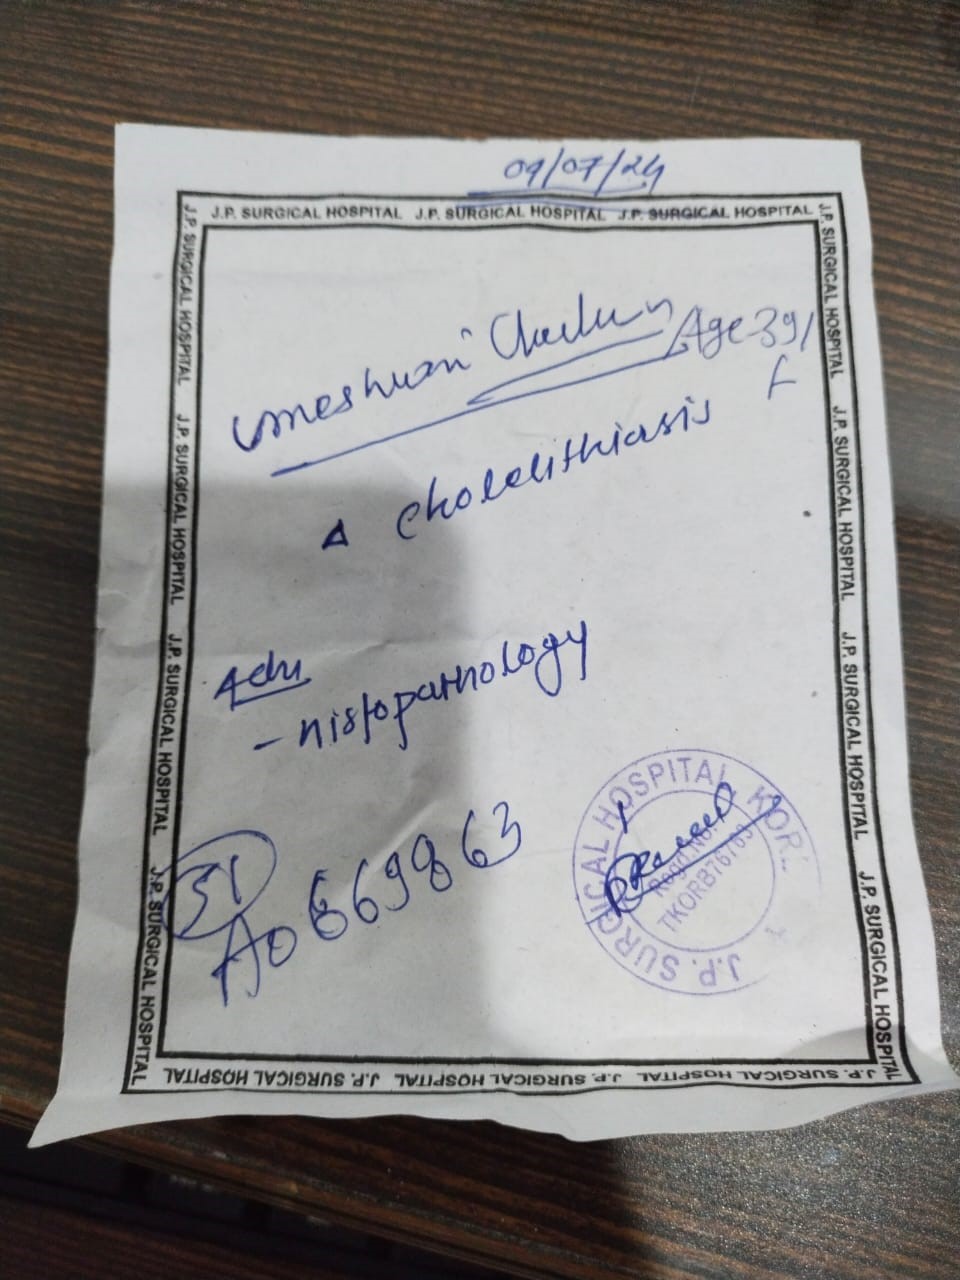 09/07/24
J.P. SURGICAL HOSPITAL J.P. SURGICAL HOSPITAL J.P. SURGICAL HOSPITAL
J.P. SURGICAL HOSPITAL J.P. SURGICAL HOSPITAL J.P. SURGICAL HOSPITAL J.P. SURGICAL HOSPITAL
J.P. SURGICAL HOSPITAL J.P. SURGICAL HOSPITAL J.P. SURGICAL HOSPITAL J.P. SURGICAL HOSPITAL
Age-39/
F
Δ cholelithiasis
Adv
- Histopathology
51
A0669863
J.P. SURGICAL HOSPITAL, KOR
Regd.No.
TKORB76/769
J.P. SURGICAL HOSPITAL J.P. SURGICAL HOSPITAL J.P. SURGICAL HOSPITAL